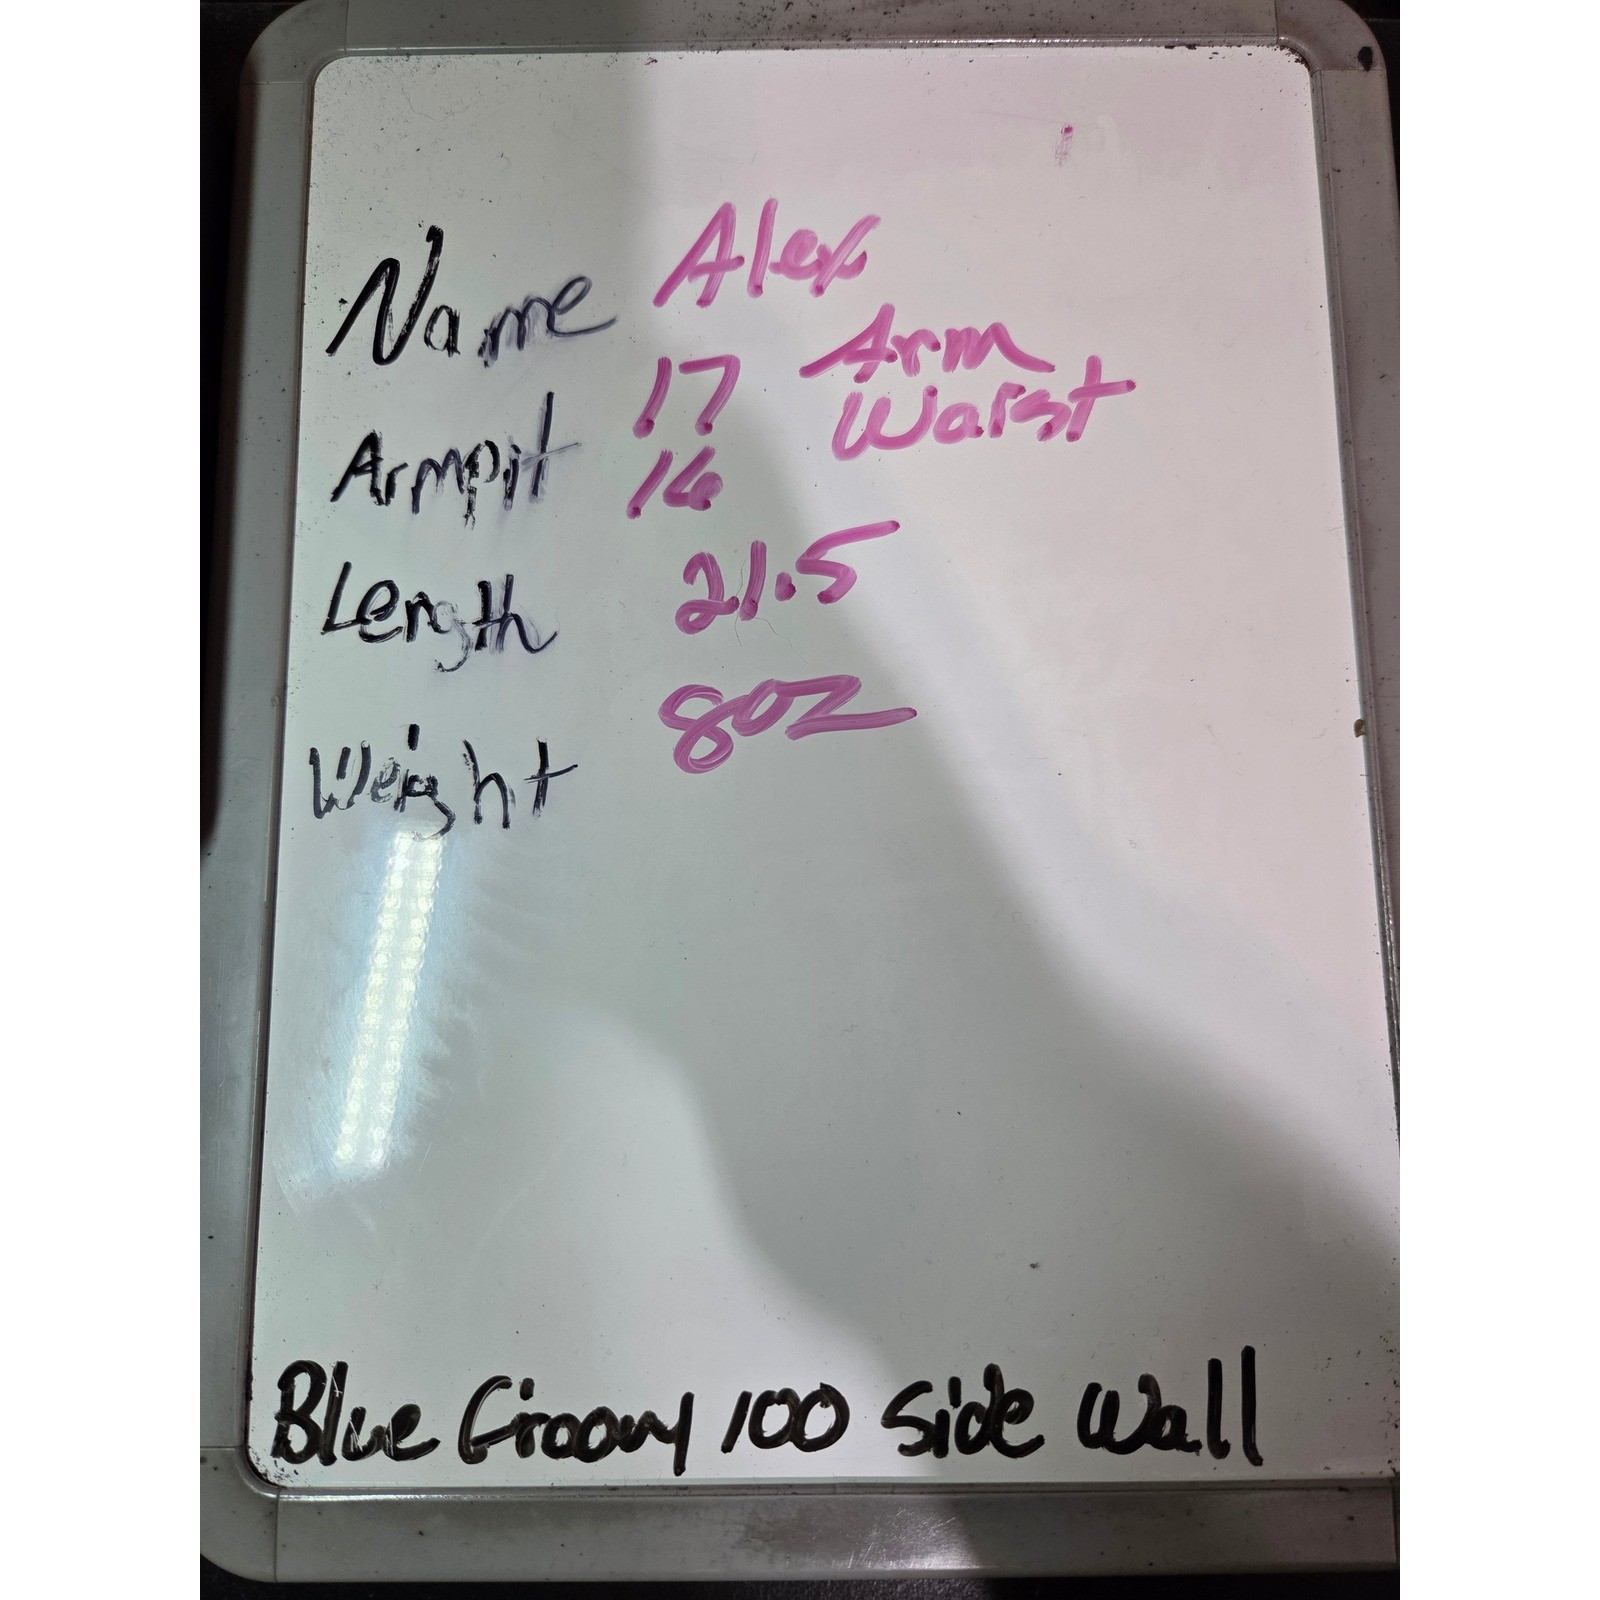 Name Alex
Armpit 17 Arm
16 Waist
Length 21.5
Weight 8oz
Blue Groovy 100 Side Wall